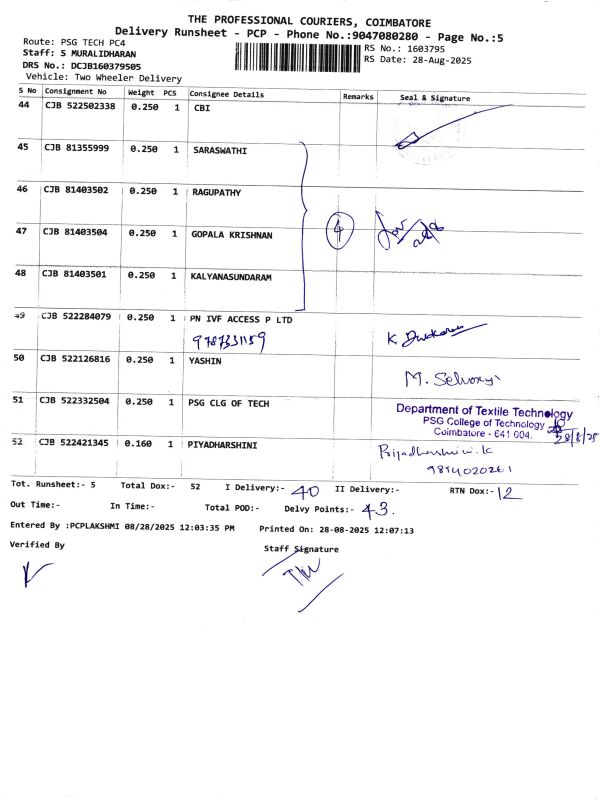 THE PROFESSIONAL COURIERS, COIMBATORE
Delivery Runsheet - PCP - Phone No.:9047080280 - Page No.:5
Route: PSG TECH PC4
RS No.: 1603795
Staff: S MURALIDHARAN
RS Date: 28-Aug-2025
DRS No.: DCJB160379505
Vehicle: Two Wheeler Delivery
S No Consignment No Weight PCS Consignee Details Remarks Seal & Signature
44 CJB 522502338 0.250 1 CBI
45 CJB 81355999 0.250 1 SARASWATHI
46 CJB 81403502 0.250 1 RAGUPATHY
47 CJB 81403504 0.250 1 GOPALA KRISHNAN 4
48 CJB 81403501 0.250 1 KALYANASUNDARAM
49 CJB 522284079 0.250 1 PN IVF ACCESS P LTD
9787331159 K
50 CJB 522126816 0.250 1 YASHIN
M.
51 CJB 522332504 0.250 1 PSG CLG OF TECH
Department of Textile Technology
PSG College of Technology
Coimbatore - 641 004. 28/8/25
52 CJB 522421345 0.160 1 PIYADHARSHINI
Priyadharshini. K
Tot. Runsheet:- 5 Total Dox:- 52 I Delivery:- 40 II Delivery:- RTN Dox:- 12
Out Time:- In Time:- Total POD:- Delvy Points:- 43.
Entered By :PCPLAKSHMI 08/28/2025 12:03:35 PM Printed On: 28-08-2025 12:07:13
Verified By Staff Signature